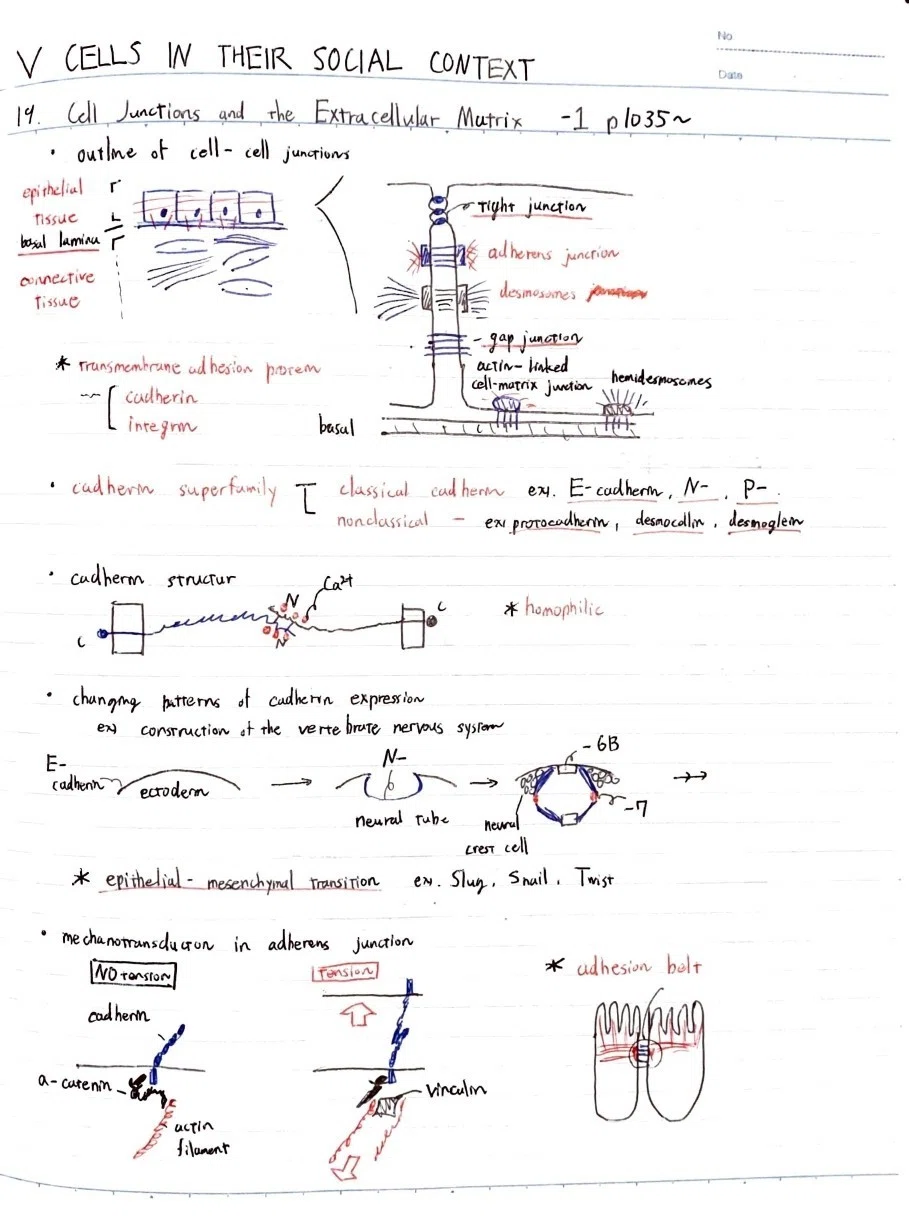 No
Date
V CELLS IN THEIR SOCIAL CONTEXT
19. Cell Junctions and the Extracellular Matrix -1 p1035~
・ outline of cell-cell junctions
epithelial
tissue
basal lamina
connective
tissue
tight junction
adherens junction
desmosomes
gap junction
actin-linked
cell-matrix junction
hemidesmosomes
basal
* transmembrane adhesion protem
cadherin
integrin
・ cadherin superfamily
classical cadherin ex. E-cadherin, N-, P-.
nonclassical - ex protocadherin, desmocollin, desmoglein
・ cadherin structur
Ca2+
N
N
C
C
* homophilic
・ changing patterns of cadherin expression
ex) construction of the vertebrate nervous system
E-
cadherin
ectoderm
N-
neural tube
-6B
-7
neural
crest cell
* epithelial-mesenchymal transition ex. Slug, Snail, Twist
・ mechanotransduction in adherens junction
NO tension
tension
* adhesion belt
cadherin
a-catenin
actin
filament
vinculin